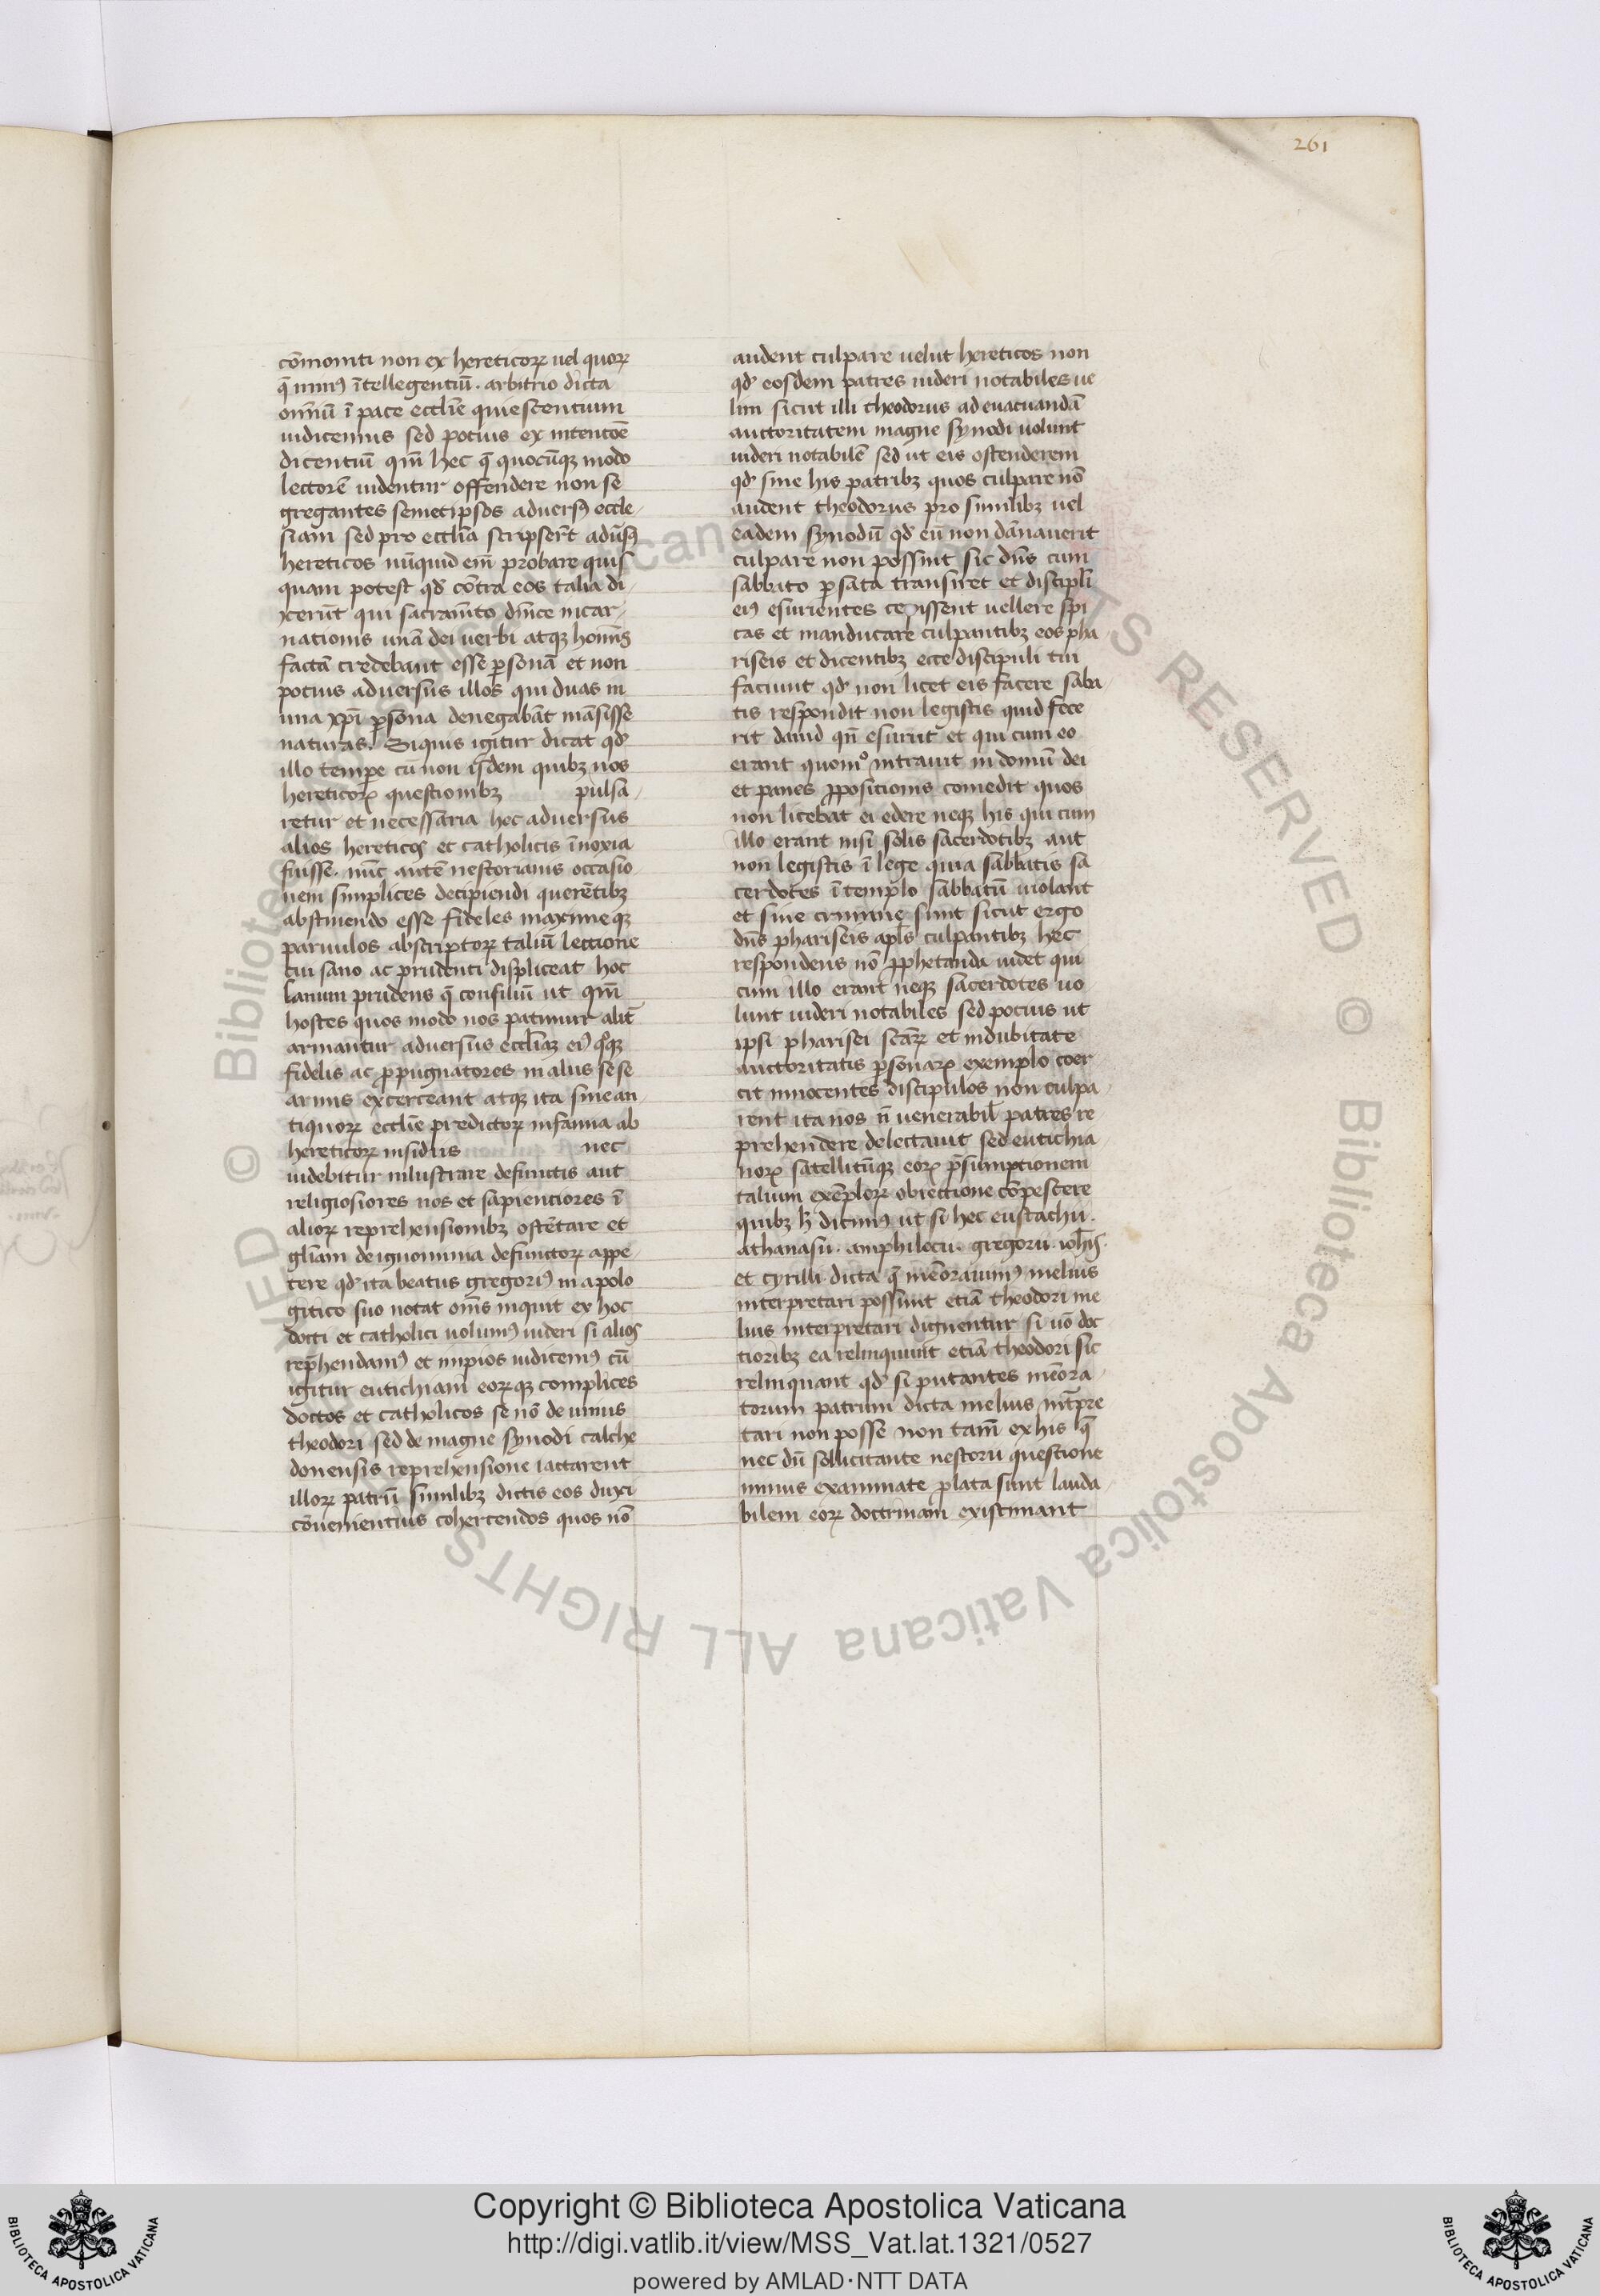 261
com̄oniti non ex hereticoꝝ uel quoꝝ
q̄ minꝰ ītellegentiū . arbitrio dicta
om̄iū ī pace eccl̄ie quiescentium
iudicemus sed pocius ex intentōe
dicentiū qm̄ hec q̄ quocūqꝫ modo
lectorē uidentur offendere non se
gregantes semetipsos adversꝰ eccle-
siam sed pro eccl̄ia scripser̄t adūsꝰ
hereticos nūquid em̄ probare quis
quam potest qd̓ cōtra eos talia di-
xerūt qui sacram̄to dn̄ice incar-
nationis unā dei uerbi atqꝫ homīs
factā credebant esse ꝑsonā et non
pocius adversus illos qui duas in
una xp̄i ꝑsona denegabāt māsisse
naturas. Siquis igitur dicat qd̓
illo tempe cū non iisdem quibꝫ nos
hereticoꝝ questionibꝫ pulsa-
retur et necessaria hec adversus
alios hereticos et catholicis īnoxia
fuisse. nūc autē nestorianis occasio
nem simplices decipiendi querētibꝫ
abstinendo esse fideles maximeqꝫ
paruulos abscriptoꝝ taliū lectione
cui sano ac prudenti displiceat hoc
sanum prudens q̄ consiliū ut qm̄
hostes quos modo nos patimur alit̄
armantur adversus eccl̄iaꝫ eiꝰ qͦqꝫ
fidelis ac ꝓpugnatores in alius sese
armis excerceant atqꝫ ita sine an-
tiquoꝝ eccl̄ie predictoꝝ infamia ab
hereticoꝝ insidiis nec
uidebitur inlustrare defunctis aut
religiosiores nos et sapientiores ī
alioꝝ reprehensionibꝫ ostētare et
gl̄iam de ignominia defunctoꝝ appe-
tere qd̓ ita beatus gregoriꝰ in apolo
gitico suo notat om̄s inquit ex hoc
docti et catholici uolumꝰ uideri si alios
rep̄hendamꝰ et impios iudicemꝰ cū
igitur eutichiani eoꝝqꝫ complices
doctos et catholicos se nō de unius
theodori sed de magne synodi calche
donensis reprehensione iactarent
illoꝝ patrū similibꝫ dictis eos duxi
cōuenientius cohercendos quos nō
audent culpare uelut hereticos non
qd̓ eosdem patres uideri notabiles ue
lim sicut illi theodorus ad euacuandā
auctoritatem magne synodi uolunt
uideri notabilē sed ut eis ostenderem
qd̓ sine his patribꝫ quos culpare nō
audent theodorus pro similibꝫ uel
eadem synodū qd̓ eū non dānauerit
culpare non possint sic dn̄s cum
sabbato ꝑ sata transiret et discipl̄i
eiꝰ esurientes cepissent uellere spi
cas et manducare culpantibꝫ eos pha-
riseis et dicentibꝫ ecce discipuli tui
faciunt qd̓ non licet eis facere saba-
tis respondit non legistis quid fece
rit dauid qn̄ esuriit et qui cum eo
erant quomͦ intrauit in domū dei
et panes ꝓposicionis comedit quos
non licebat ei edere neqꝫ his qui cum
illo erant nisi solis sacerdotibꝫ aut
non legistis ī lege quia sabbatis sa
cerdotes ī templo sabbatū uiolant
et sine crimine sunt sicut ergo
dn̄s phariseis apl̄s culpantibꝫ hec
respondens nō ꝓphetanda uidet qui
cum illo erant neqꝫ sacerdotes uo-
lunt uideri notabiles sed pocius ut
ipsi pharisei scāꝝ et indubitate
auctoritatis ꝑsonaꝝ exemplo coer
cit innocentes discipulos non culpa-
rent ita nos n̄ venerabil̄ patres re
prehendere delectauit sed eutichia-
noꝝ satellitūqꝫ eoꝝ p̄sumptionem
talium exēploꝝ obiectione cōpescere
quibꝫ dicimꝰ ut si hec eustachii.
athanasii. amphilocii. gregorii. ioh̄is.
et cyrilli dicta q̄ memōrauimꝰ melius
interpretari possunt etiā theodori me
lius interpretari dignentur si uō doc
tioribꝫ ea relinquunt etiā theodori sic
relinquant qd̓ si putantes memōra-
torum patrum dicta melius int̄pre
tari non posse non tam̄ ex his q̄
nec dū sollicitante nestorii questione
minus examinate ꝓlata sunt lauda-
bilem eoꝝ doctrinam existimant
© Biblioteca Apostolica Vaticana ALL RIGHTS RESERVED
Copyright © Biblioteca Apostolica Vaticana
http://digi.vatlib.it/view/MSS_Vat.lat.1321/0527
powered by AMLAD·NTT DATA
BIBLIOTECA APOSTOLICA VATICANA
BIBLIOTECA APOSTOLICA VATICANA